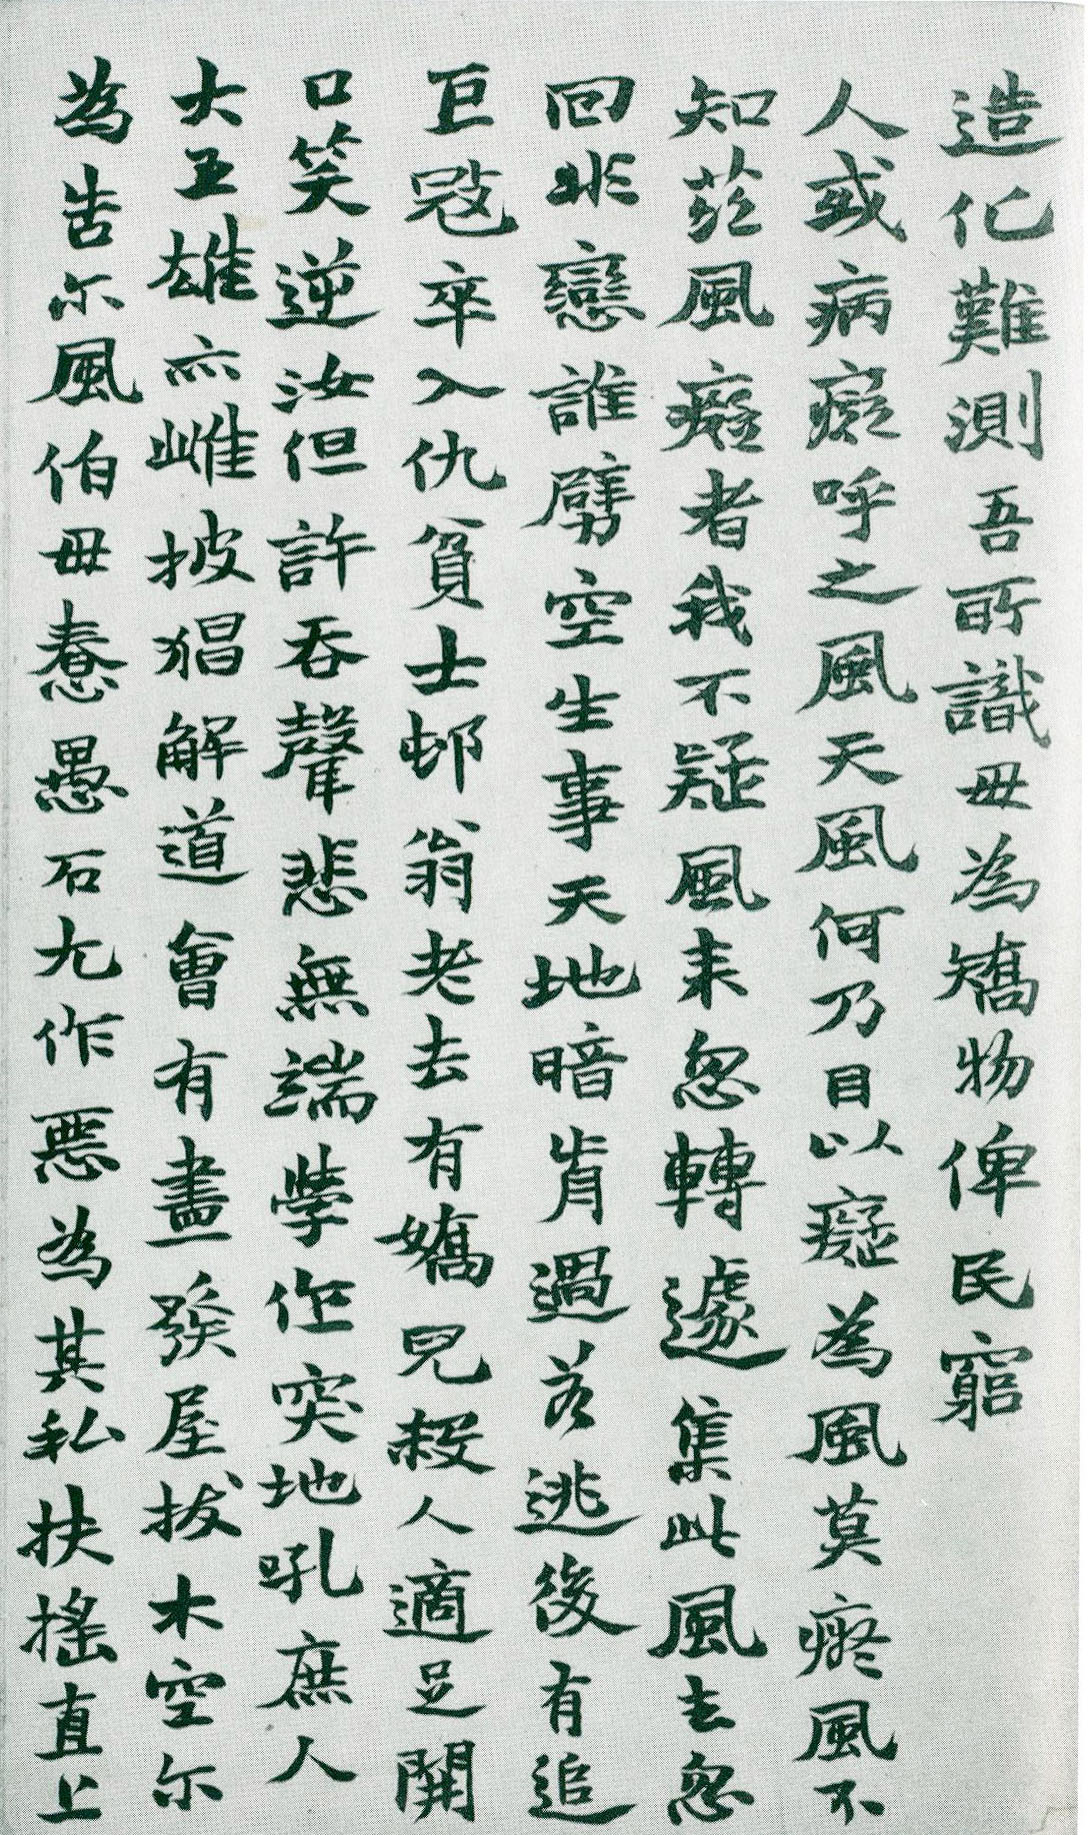 造化難測吾所識毋為矯物俾民窮
人或病癡呼之風天風何乃目以癡為風莫癡風不
知范風癡者我不疑風来忽轉遽集此風去忽
回非戀誰劈空生事天地暗肯過若逃後有追
巨寇卒入仇貧士邨翁老去有嬌兒殺人適足開
口笑逆汝但許吞聲悲無端學作突地吼庶人
大王雄亦雌披猖解道會有盡發屋拔木空尔
為告尔風伯毋惷愚石尤作惡為其私扶搖直上